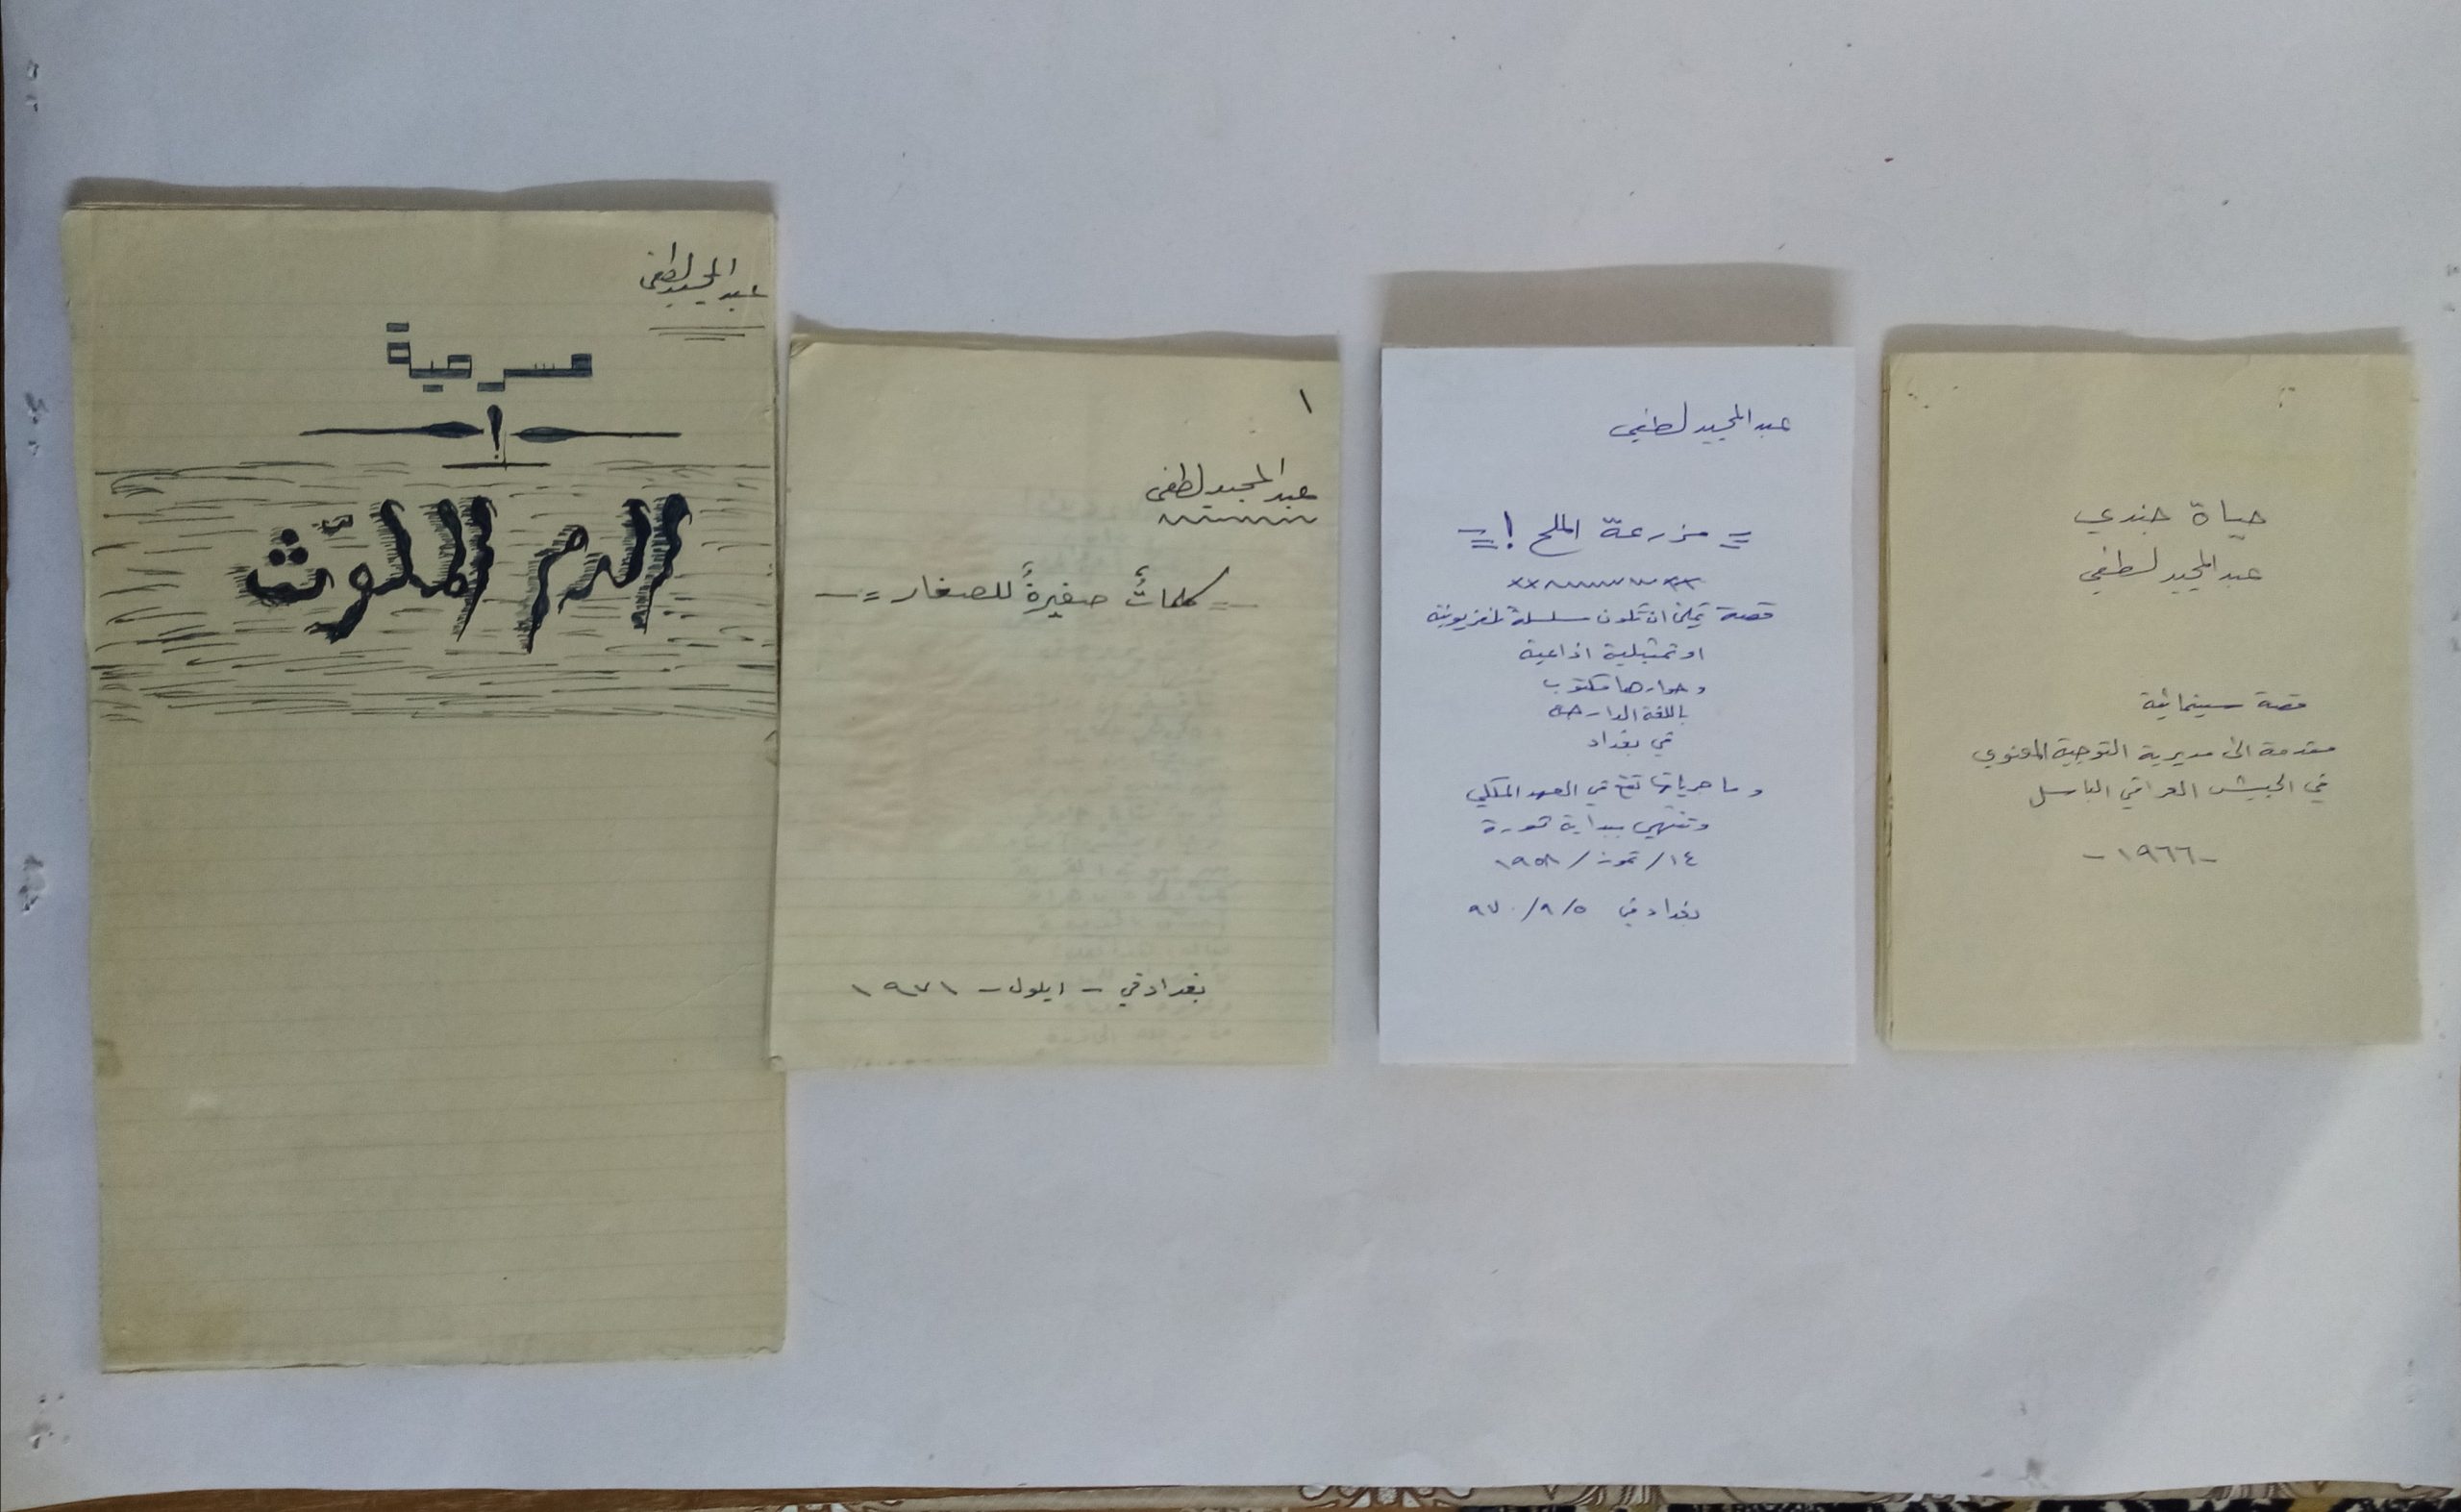 عبد المجيد لطفي
مسرحية
!
الدم الملوّث
١
عبد المجيد لطفي
= كلماتٌ صغيرةٌ للصغار =
بغداد في - ايلول - ١٩٧١
عبد المجيد لطفي
= مزرعة الملح ! =
قصة يمكن ان تكون سلسلة تلفزيونية
او تمثيلية اذاعية
وحوارها مكتوب
باللغة الدارجة
في بغداد
وماجرياتها تقع في العهد الملكي
وتنتهي ببداية ثورة
١٤/ تموز / ١٩٥٨
بغداد في ٥/٩/٩٧٠
حياة جندي
عبد المجيد لطفي
قصة سينمائية
مقدمة الى مديرية التوجيه المعنوي
في الجيش العراقي الباسل
- ١٩٦٦ -